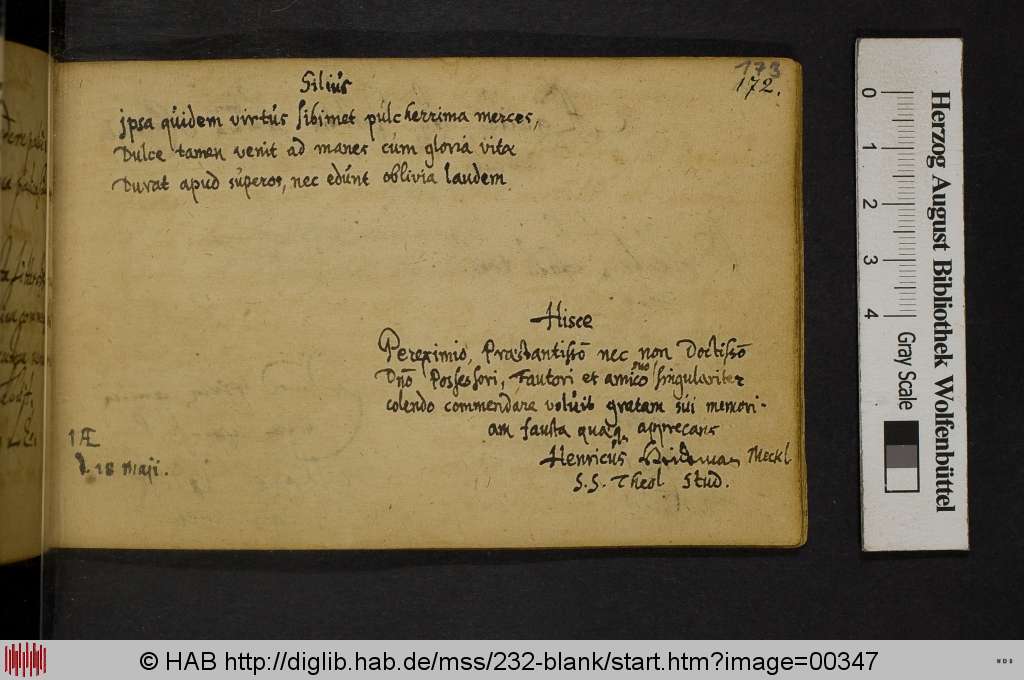 173
172.
Silius
jpsa quidem virtus sibimet pulcherrima merces,
Dulce tamen venit ad manes cum gloria vitæ
Durat apud superos, nec edunt oblivia laudem
Hisce
Pereximio, Præstantissō nec non Doctissō
Dn̄o Possessori, Fautori et amico suo singulariter
colendo commendare voluit gratam sui memori-
am fausta quæq, apprecans
Henricus Meckl
S. S. Theol Stud.
d. 18 Maji.
0 1 2 3 4
Gray Scale
Herzog August Bibliothek Wolfenbüttel
© HAB http://diglib.hab.de/mss/232-blank/start.htm?image=00347